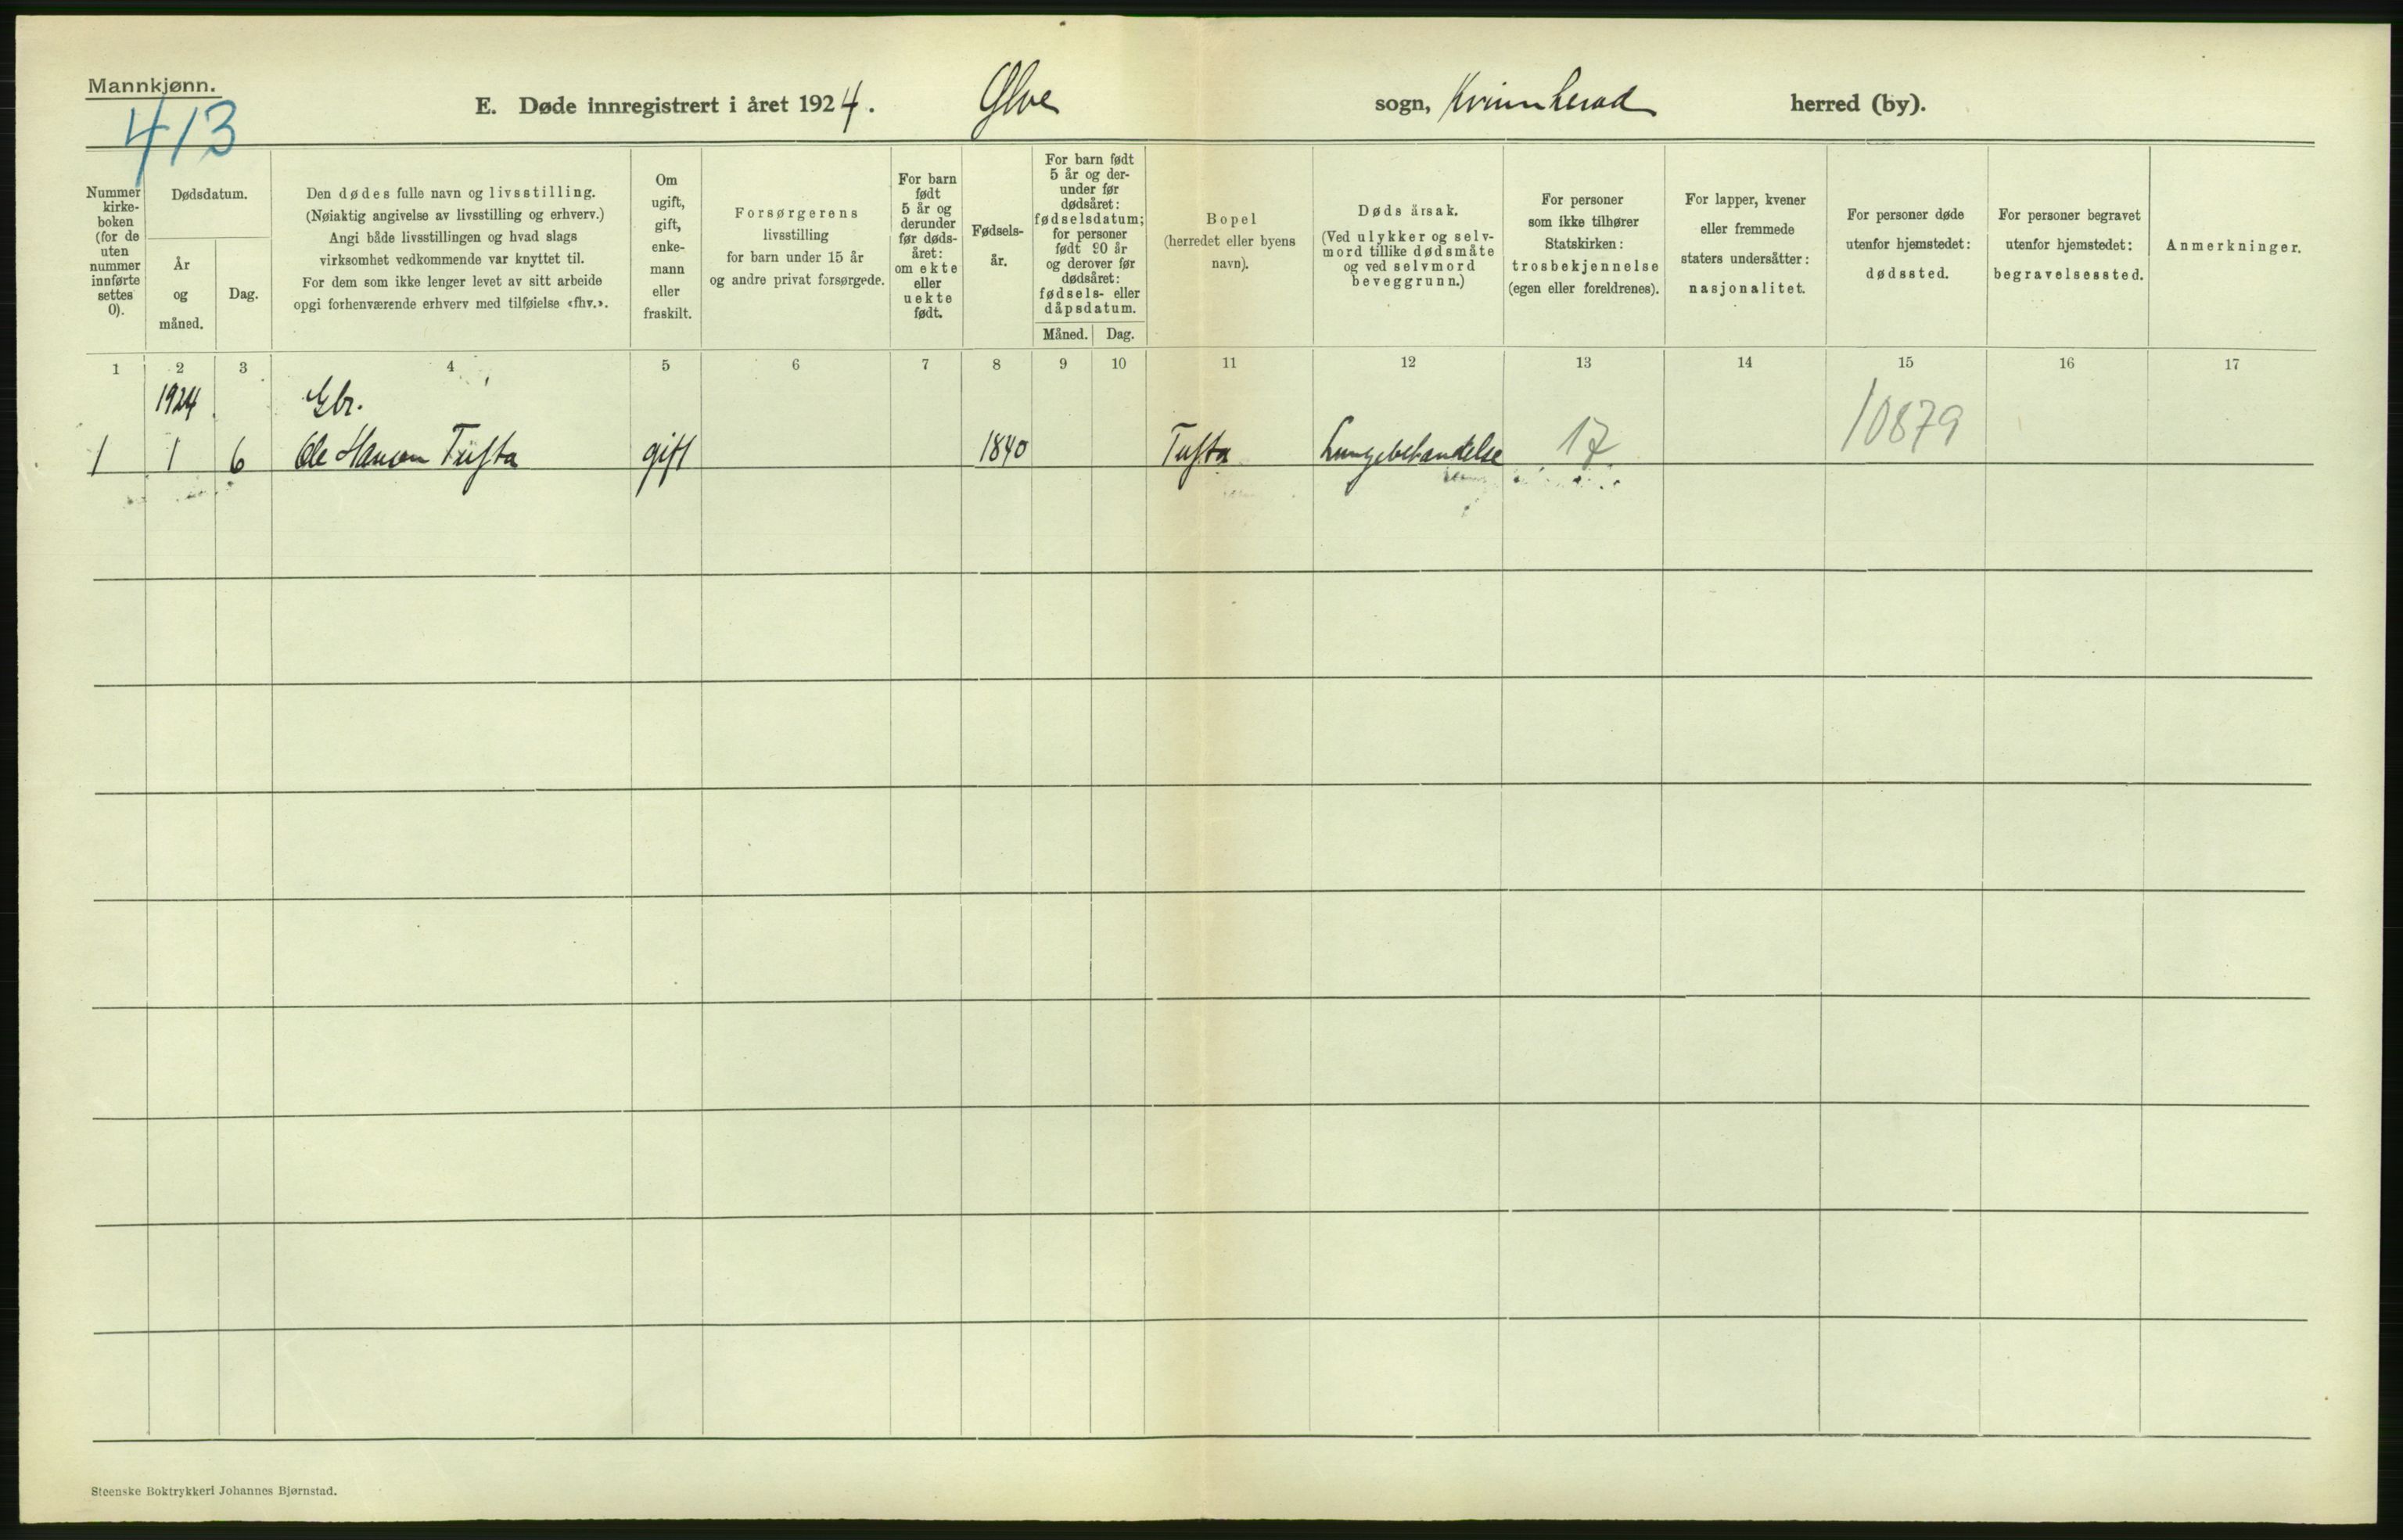 Mannkjønn.
413
E. Døde innregistrert i året 1924. Ølve sogn, Kvinnherad herred (by).
Nummer kirke-boken (for de uten nummer innførte settes 0).
Dødsdatum.
År og måned.
Dag.
Den dødes fulle navn og livsstilling.
(Nøiaktig angivelse av livsstilling og erhverv.)
Angi både livsstillingen og hvad slags
virksomhet vedkommende var knyttet til.
For dem som ikke lenger levet av sitt arbeide
opgi forhenværende erhverv med tilføielse «fhv.».
Om ugift, gift, enke-mann eller fraskilt.
Forsørgerens
livsstilling
for barn under 15 år
og andre privat forsørgede.
For barn født 5 år og derunder før døds-året: om ekte eller uekte født.
Fødsels-år.
For barn født 5 år og der-under før dødsåret: fødselsdatum; for personer født 90 år og derover før dødsåret: fødsels- eller dåpsdatum.
Måned. Dag.
Bopel
(herredet eller byens
navn).
Dødsårsak.
(Ved ulykker og selv-
mord tillike dødsmåte
og ved selvmord
beveggrunn.)
For personer
som ikke tilhører
Statskirken:
trosbekjennelse
(egen eller foreldrenes).
For lapper, kvener
eller fremmede
staters undersåtter:
nasjonalitet.
For personer døde
utenfor hjemstedet:
dødssted.
For personer begravet
utenfor hjemstedet:
begravelsessted.
Anmerkninger.
1 2 3 4 5 6 7 8 9 10 11 12 13 14 15 16 17
1924 Gbr.
1 1 6 Ole Hanson Tufta gift 1840 Tufta Lungebetændelse 17 10879
Steenske Boktrykkeri Johannes Bjørnstad.